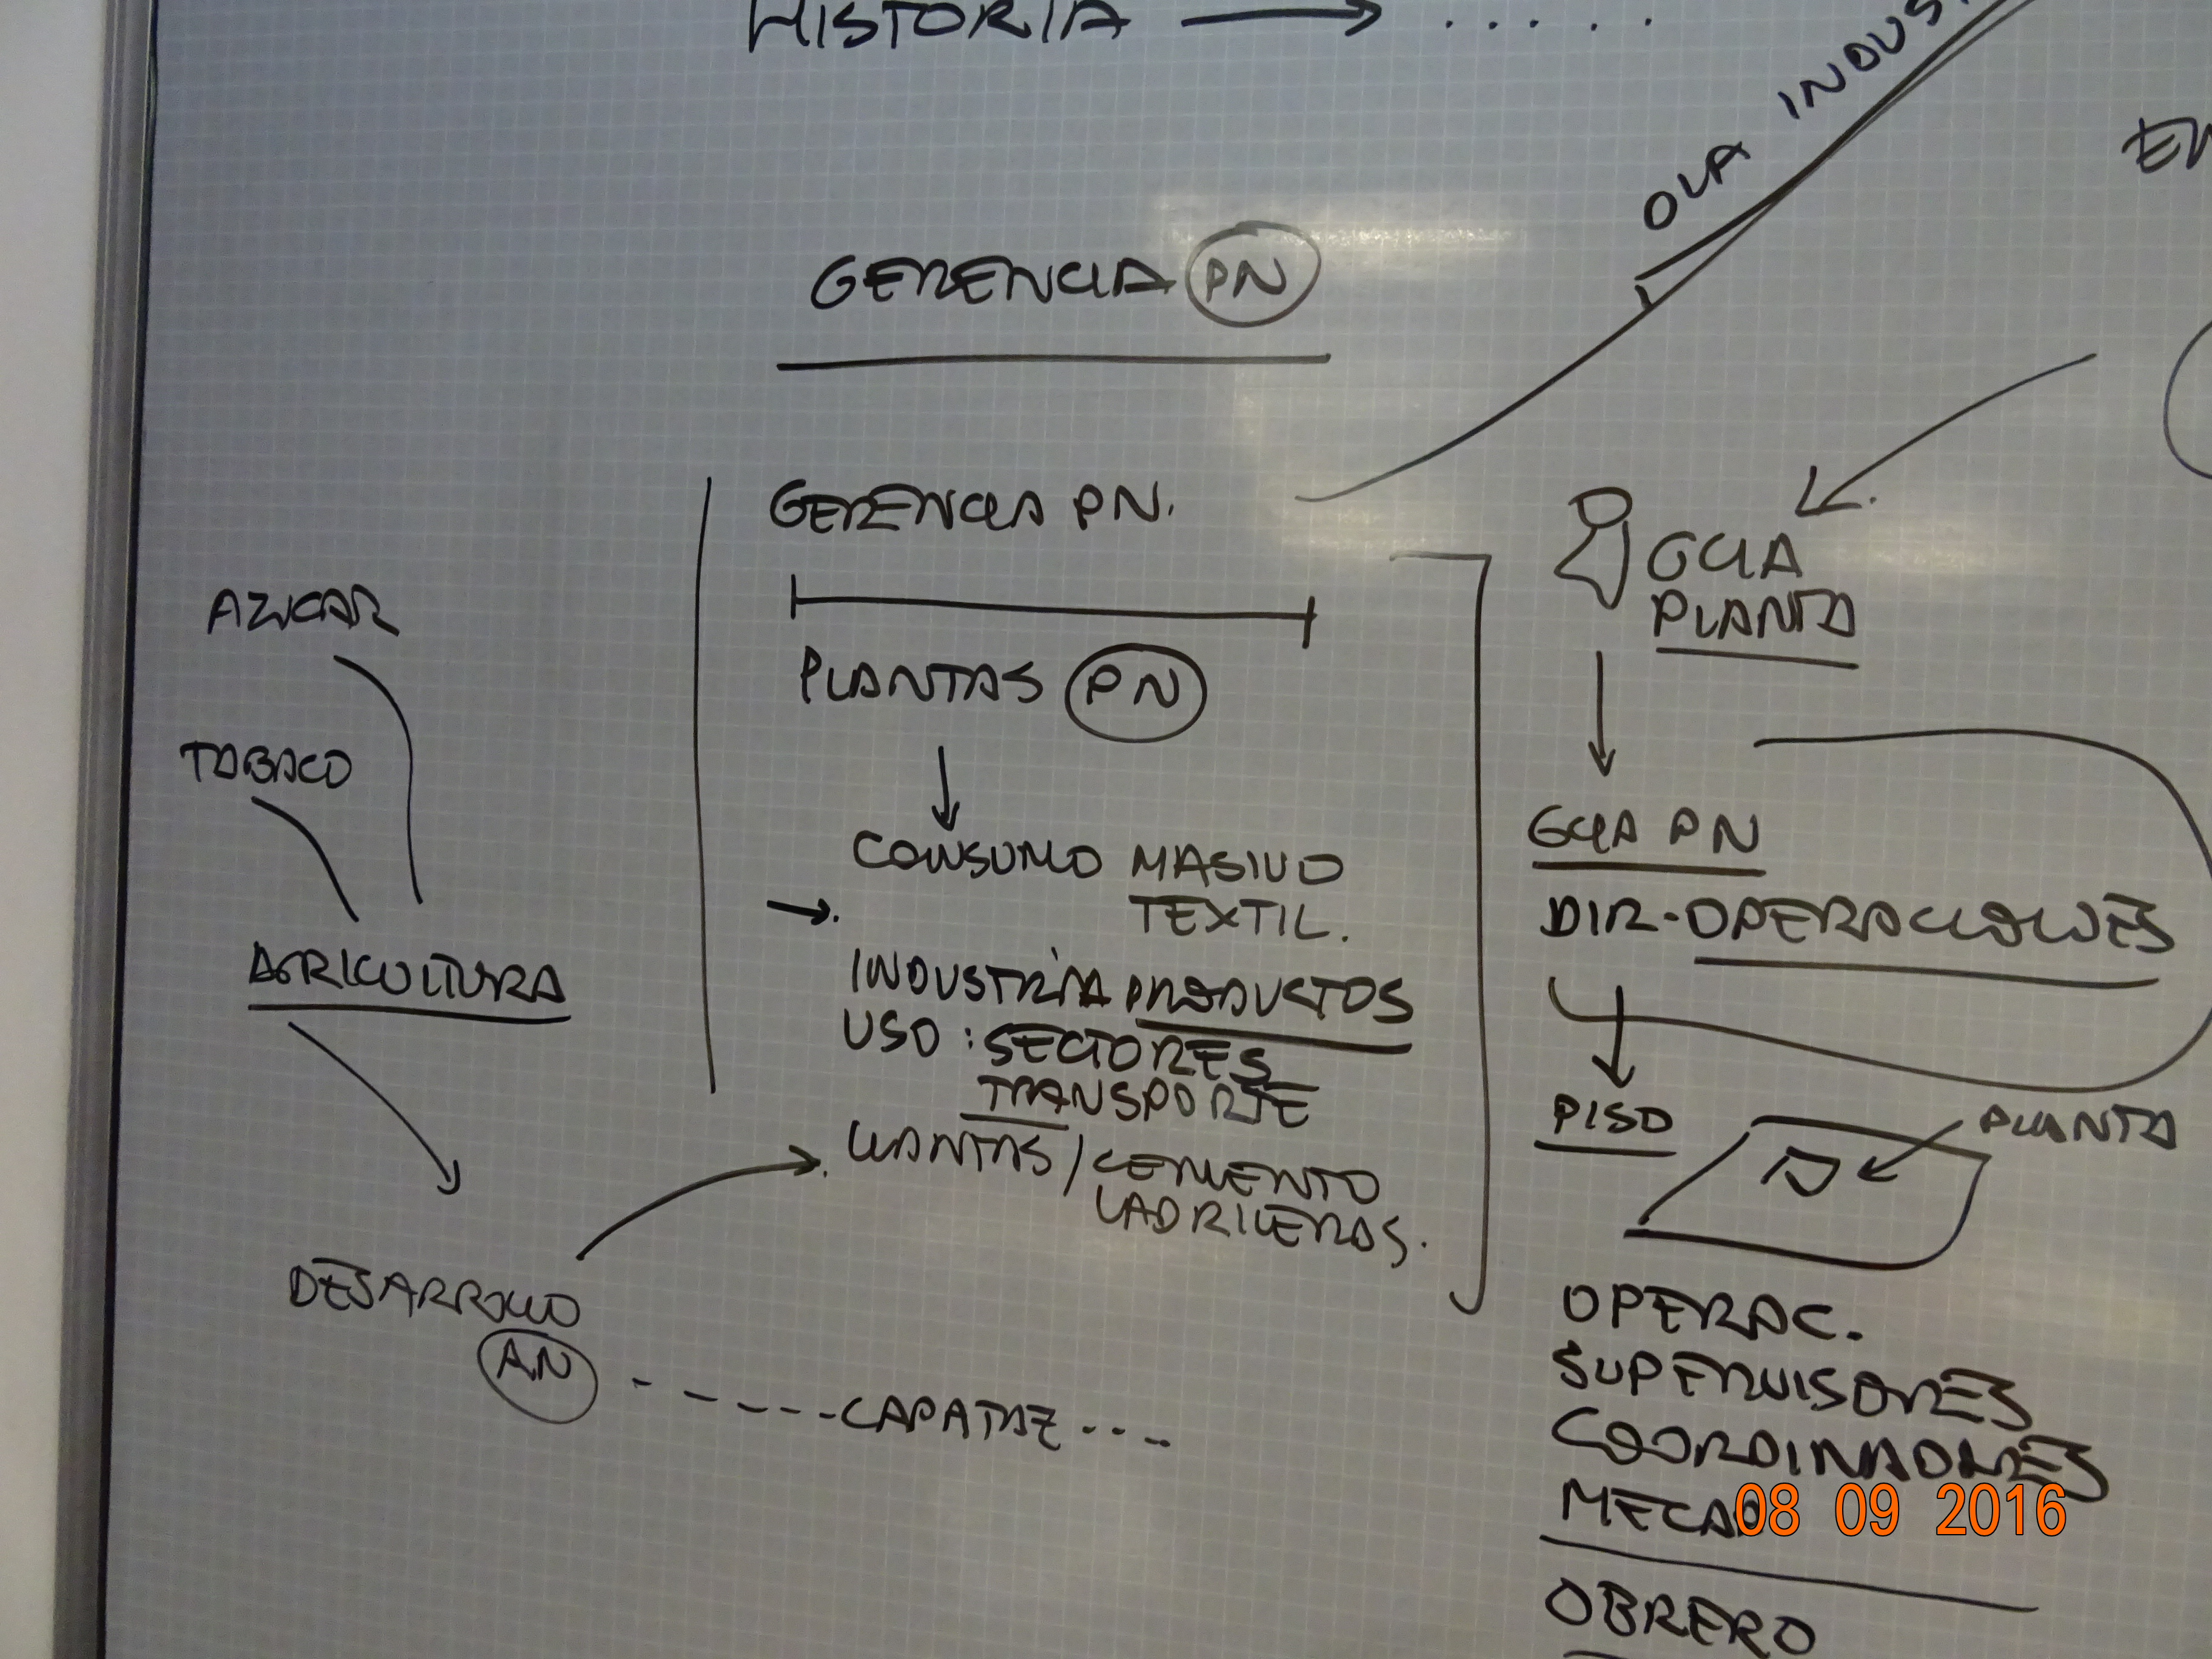 HISTORIA → .....
OLA INDUST
GERENCIA PN
GERENCIA PN.
PLANTAS PN
CONSUMO MASIVO
TEXTIL.
INDUSTRIA PRODUCTOS
USO: SECTORES
TRANSPORTE
LLANTAS / CEMENTO
LADRILLERAS.
AZUCAR
TABACO
AGRICULTURA
DESARROLLO
AN ----- CAPATAZ ...
GCIA
PLANTA
GCIA PN
DIR-OPERACIONES
PISO
PLANTA
OPERAC.
SUPERVISORES
COORDINADORES
08 09 2016
OBRERO